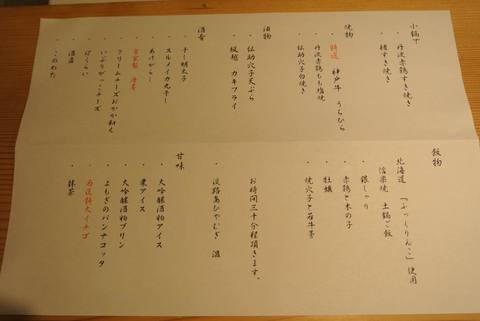 小鍋す
・丹波赤鶏すき焼き
・猪すき焼き
焼物
・特選 神戸牛 うちひら
・丹波赤鶏もも塩焼
・伝助穴子白焼き
油物
・伝助穴子天ぷら
・坂越 カキフライ
酒肴
・チー明太子
・スルメイカ丸干し
・あけがらし
・自家製
・クリームチーズおかか和え
・いぶりがっことチーズ
・ばくらい
・酒盗
・このわた
飯物
北海道 「ふっくりんこ」使用
信楽焼 土鍋ご飯
・銀しゃり
・赤鶏と木の子
・牡蠣
・焼穴子と若牛蒡
お時間三十分程頂きます。
・淡路島ひやむぎ 温
甘味
・大吟醸酒粕アイス
・栗アイス
・大吟醸酒粕プリン
・よもぎのパンナコッタ
・特大イチゴ
・抹茶